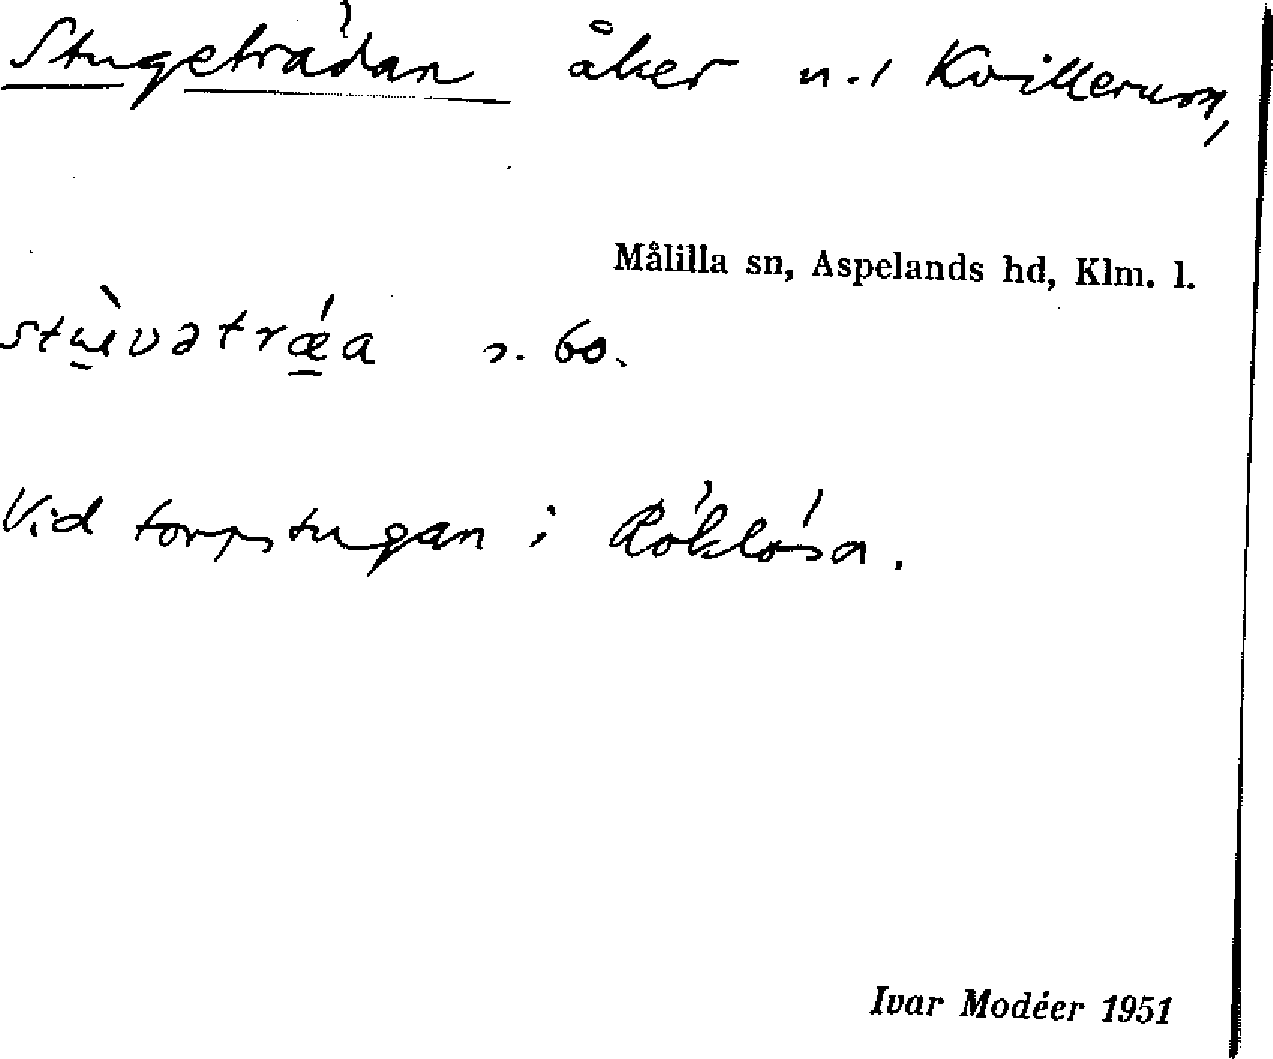 Stugeträdan åker n.1 Kvillerum,
Målilla sn, Aspelands hd, Klm. l.
s. 60.
Vid torpstugan i Röklösa.
Ivar Modéer 1951